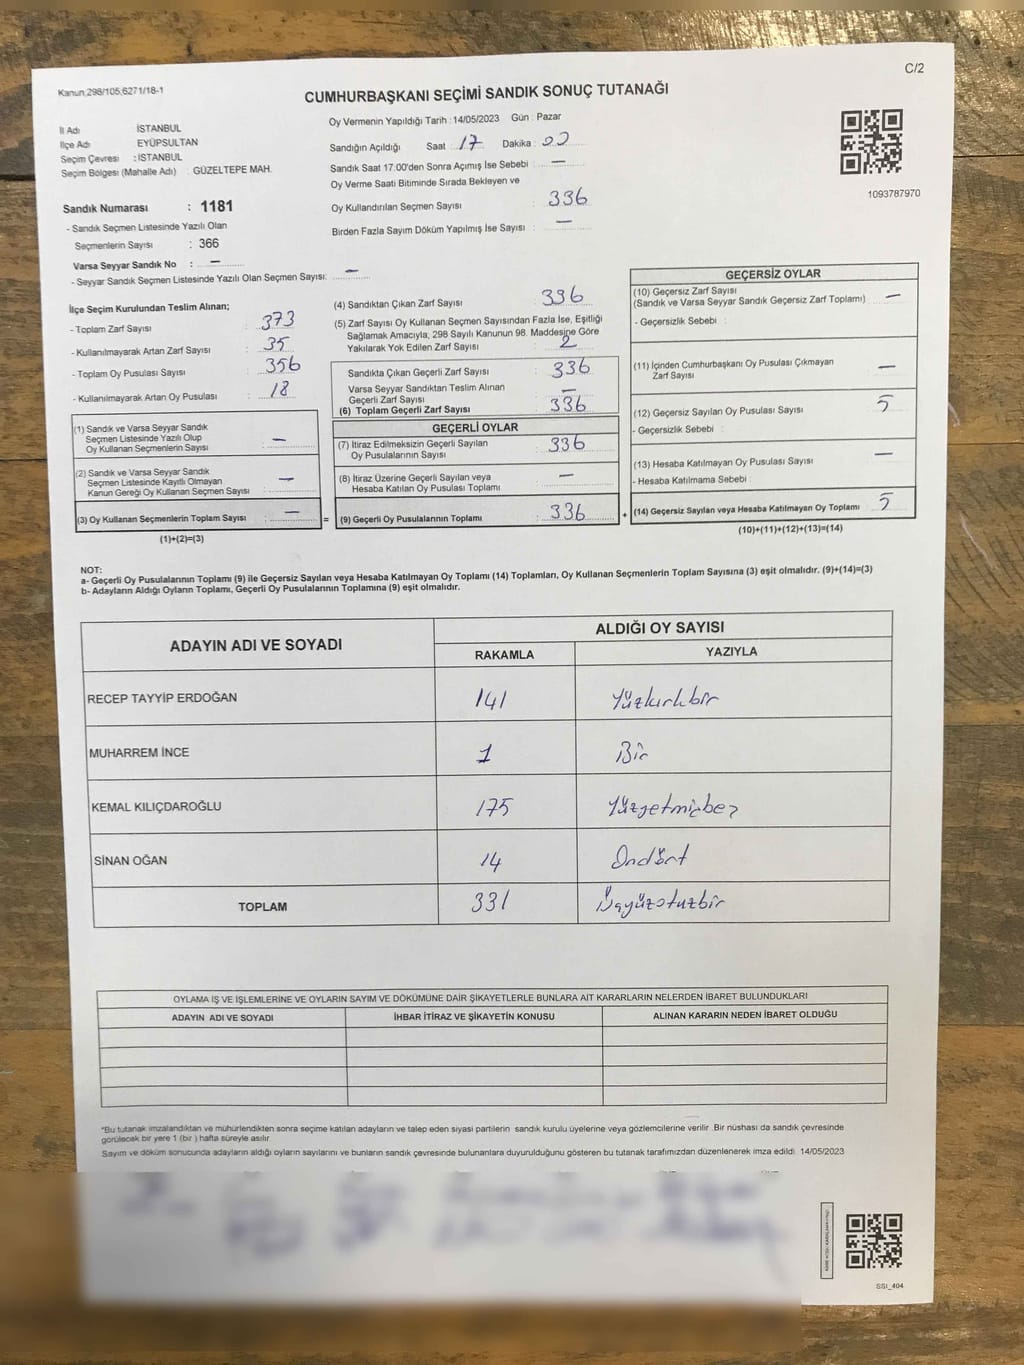 C/2
Kanun 298/105,6271/18-1
CUMHURBAŞKANI SEÇİMİ SANDIK SONUÇ TUTANAĞI
İl Adı İSTANBUL
İlçe Adı EYÜPSULTAN
Seçim Çevresi : İSTANBUL
Seçim Bölgesi (Mahalle Adı) : GÜZELTEPE MAH.
Sandık Numarası : 1181
- Sandık Seçmen Listesinde Yazılı Olan
Seçmenlerin Sayısı : 366
Varsa Seyyar Sandık No : —
- Seyyar Sandık Seçmen Listesinde Yazılı Olan Seçmen Sayısı: —
Oy Vermenin Yapıldığı Tarih : 14/05/2023 Gün : Pazar
Sandığın Açıldığı Saat : 17 Dakika : 00
Sandık Saat 17:00'den Sonra Açımış İse Sebebi : —
Oy Verme Saati Bitiminde Sırada Bekleyen ve
Oy Kullandırılan Seçmen Sayısı : 336
Birden Fazla Sayım Döküm Yapılmış İse Sayısı : —
1093787970
İlçe Seçim Kurulundan Teslim Alınan;
- Toplam Zarf Sayısı : 373
- Kullanılmayarak Artan Zarf Sayısı : 35
- Toplam Oy Pusulası Sayısı : 356
- Kullanılmayarak Artan Oy Pusulası : 18
(1) Sandık ve Varsa Seyyar Sandık
Seçmen Listesinde Yazılı Olup
Oy Kullanan Seçmenlerin Sayısı : —
(2) Sandık ve Varsa Seyyar Sandık
Seçmen Listesinde Kayıtlı Olmayan
Kanun Gereği Oy Kullanan Seçmen Sayısı : —
(3) Oy Kullanan Seçmenlerin Toplam Sayısı : —
(1)+(2)=(3)
=
(4) Sandıktan Çıkan Zarf Sayısı : 336
(5) Zarf Sayısı Oy Kullanan Seçmen Sayısından Fazla İse, Eşitliği
Sağlamak Amacıyla, 298 Sayılı Kanunun 98. Maddesine Göre
Yakılarak Yok Edilen Zarf Sayısı : 2
Sandıkta Çıkan Geçerli Zarf Sayısı : 336
Varsa Seyyar Sandıktan Teslim Alınan
Geçerli Zarf Sayısı : —
(6) Toplam Geçerli Zarf Sayısı : 336
GEÇERLİ OYLAR
(7) İtiraz Edilmeksizin Geçerli Sayılan
Oy Pusulalarının Sayısı : 336
(8) İtiraz Üzerine Geçerli Sayılan veya
Hesaba Katılan Oy Pusulası Toplamı : —
(9) Geçerli Oy Pusulalarının Toplamı : 336
+
GEÇERSİZ OYLAR
(10) Geçersiz Zarf Sayısı
(Sandık ve Varsa Seyyar Sandık Geçersiz Zarf Toplamı) : —
- Geçersizlik Sebebi :
(11) İçinden Cumhurbaşkanı Oy Pusulası Çıkmayan
Zarf Sayısı : —
(12) Geçersiz Sayılan Oy Pusulası Sayısı : 5
- Geçersizlik Sebebi :
(13) Hesaba Katılmayan Oy Pusulası Sayısı : —
- Hesaba Katılmama Sebebi :
(14) Geçersiz Sayılan veya Hesaba Katılmayan Oy Toplamı : 5
(10)+(11)+(12)+(13)=(14)
NOT:
a- Geçerli Oy Pusulalarının Toplamı (9) ile Geçersiz Sayılan veya Hesaba Katılmayan Oy Toplamı (14) Toplamları, Oy Kullanan Seçmenlerin Toplam Sayısına (3) eşit olmalıdır. (9)+(14)=(3)
b- Adayların Aldığı Oyların Toplamı, Geçerli Oy Pusulalarının Toplamına (9) eşit olmalıdır.
ADAYIN ADI VE SOYADI ALDIĞI OY SAYISI
RAKAMLA YAZIYLA
RECEP TAYYİP ERDOĞAN 141 Yüzkırkbir
MUHARREM İNCE 1 Bir
KEMAL KILIÇDAROĞLU 175 Yüzyetmişbeş
SİNAN OĞAN 14 Ondört
TOPLAM 331 Üçyüzotuzbir
OYLAMA İŞ VE İŞLEMLERİNE VE OYLARIN SAYIM VE DÖKÜMÜNE DAİR ŞİKAYETLERLE BUNLARA AİT KARARLARIN NELERDEN İBARET BULUNDUKLARI
ADAYIN ADI VE SOYADI İHBAR İTİRAZ VE ŞİKAYETİN KONUSU ALINAN KARARIN NEDEN İBARET OLDUĞU
*Bu tutanak imzalandıktan ve mühürlendikten sonra seçime katılan adayların ve talep eden siyasi partilerin sandık kurulu üyelerine veya gözlemcilerine verilir .Bir nüshası da sandık çevresinde
görülecek bir yere 1 (bir ) hafta süreyle asılır.
Sayım ve döküm sonucunda adayların aldığı oyların sayılarını ve bunların sandık çevresinde bulunanlara duyurulduğunu gösteren bu tutanak tarafımızdan düzenlenerek imza edildi. 14/05/2023
SSI_404